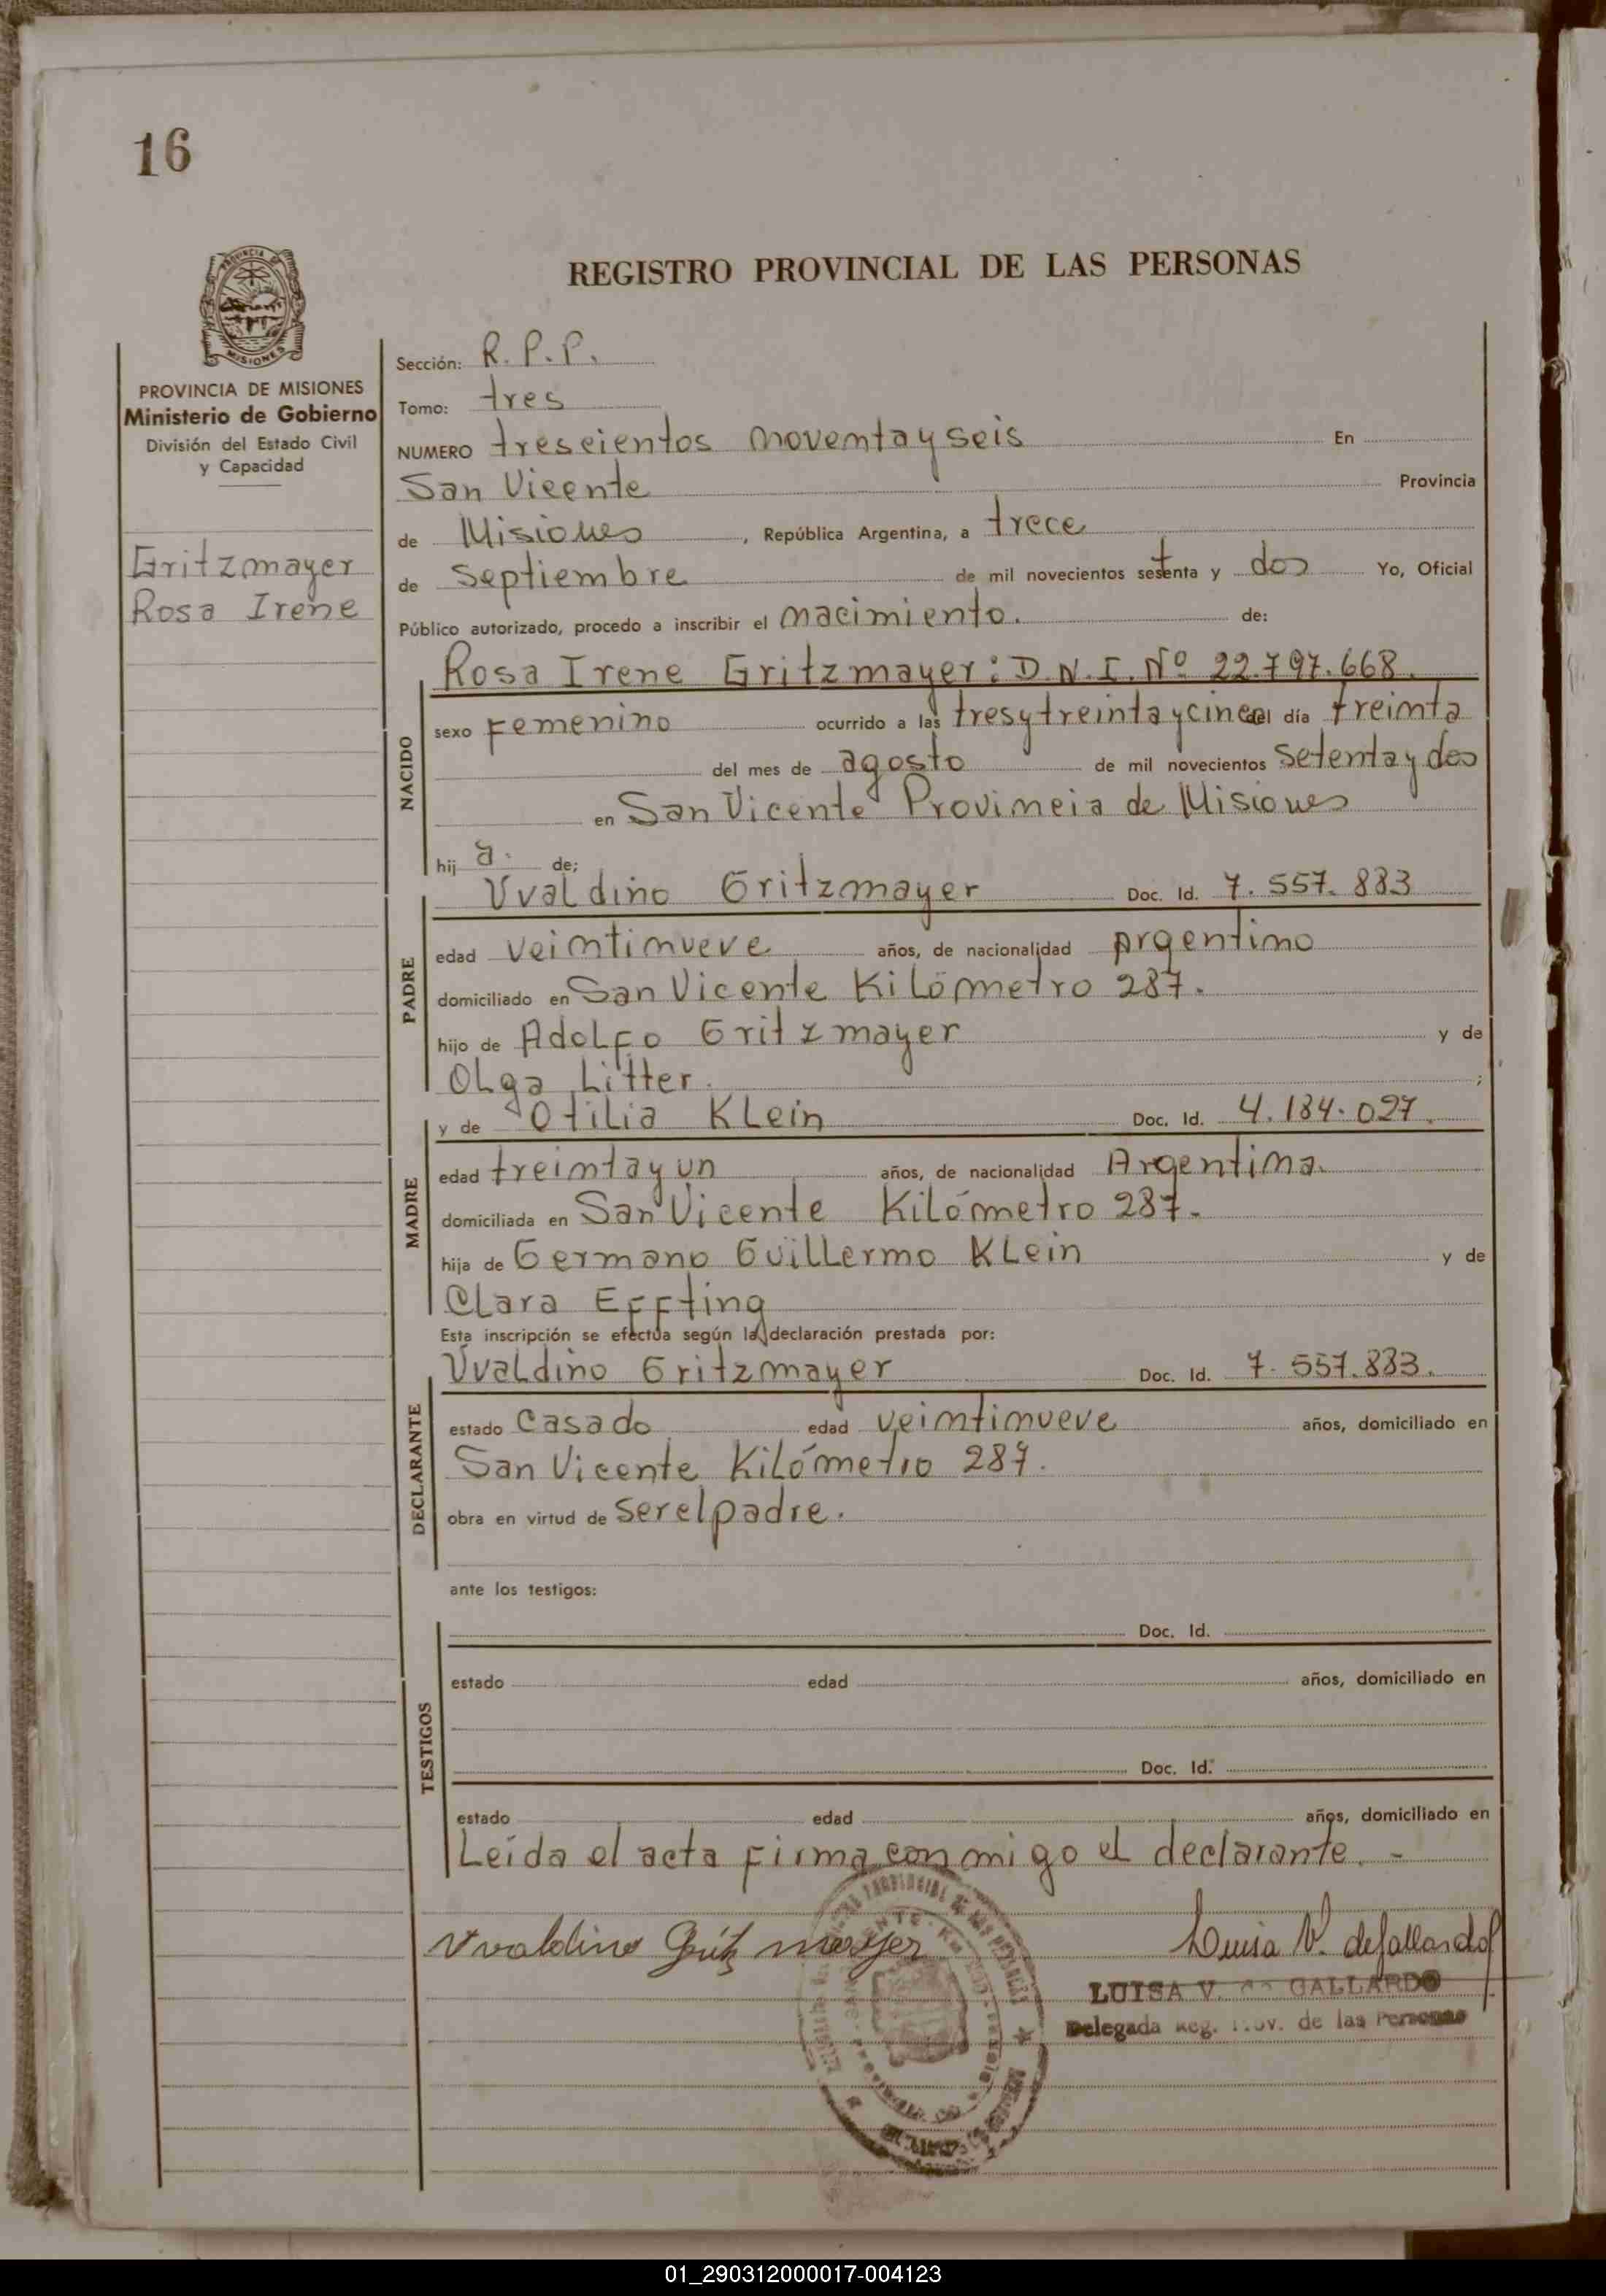 16
REGISTRO PROVINCIAL DE LAS PERSONAS
PROVINCIA DE MISIONES
Ministerio de Gobierno
División del Estado Civil
y Capacidad
Gritzmayer
Rosa Irene
Sección: R. P. P.
Tomo: tres
NUMERO trescientos noventa y seis En
San Vicente Provincia
de Misiones, República Argentina, a trece
de septiembre de mil novecientos setenta y dos Yo, Oficial
Público autorizado, procedo a inscribir el nacimiento. de:
Rosa Irene Gritzmayer: D.N.I. Nº 22.797.668.
NACIDO
sexo Femenino ocurrido a las tres y treinta y cinco del día treinta
del mes de agosto de mil novecientos setenta y dos
en San Vicente Provincia de Misiones
hij a. de;
Uvaldino Gritzmayer Doc. Id. 7.557.883
PADRE
edad veintinueve años, de nacionalidad Argentino
domiciliado en San Vicente Kilómetro 287.
hijo de Adolfo Gritzmayer y de
Olga Litter. ;
y de Otilia Klein Doc. Id. 4.184.027.
MADRE
edad treinta y un años, de nacionalidad Argentina.
domiciliada en San Vicente Kilómetro 287.
hija de Germano Guillermo Klein y de
Clara Effting
Esta inscripción se efectúa según la declaración prestada por:
Uvaldino Gritzmayer Doc. Id. 7.557.883.
DECLARANTE
estado casado edad veintinueve años, domiciliado en
San Vicente Kilómetro 287.
obra en virtud de ser el padre.
ante los testigos:
Doc. Id.
TESTIGOS
estado edad años, domiciliado en
Doc. Id.
estado edad años, domiciliado en
Leída el acta firma conmigo el declarante. -
Uvaldino Gritz mayer
Luisa V. de Gallardo
LUISA V. de GALLARDO
Delegada Reg. Prov. de las Personas
01_290312000017-004123